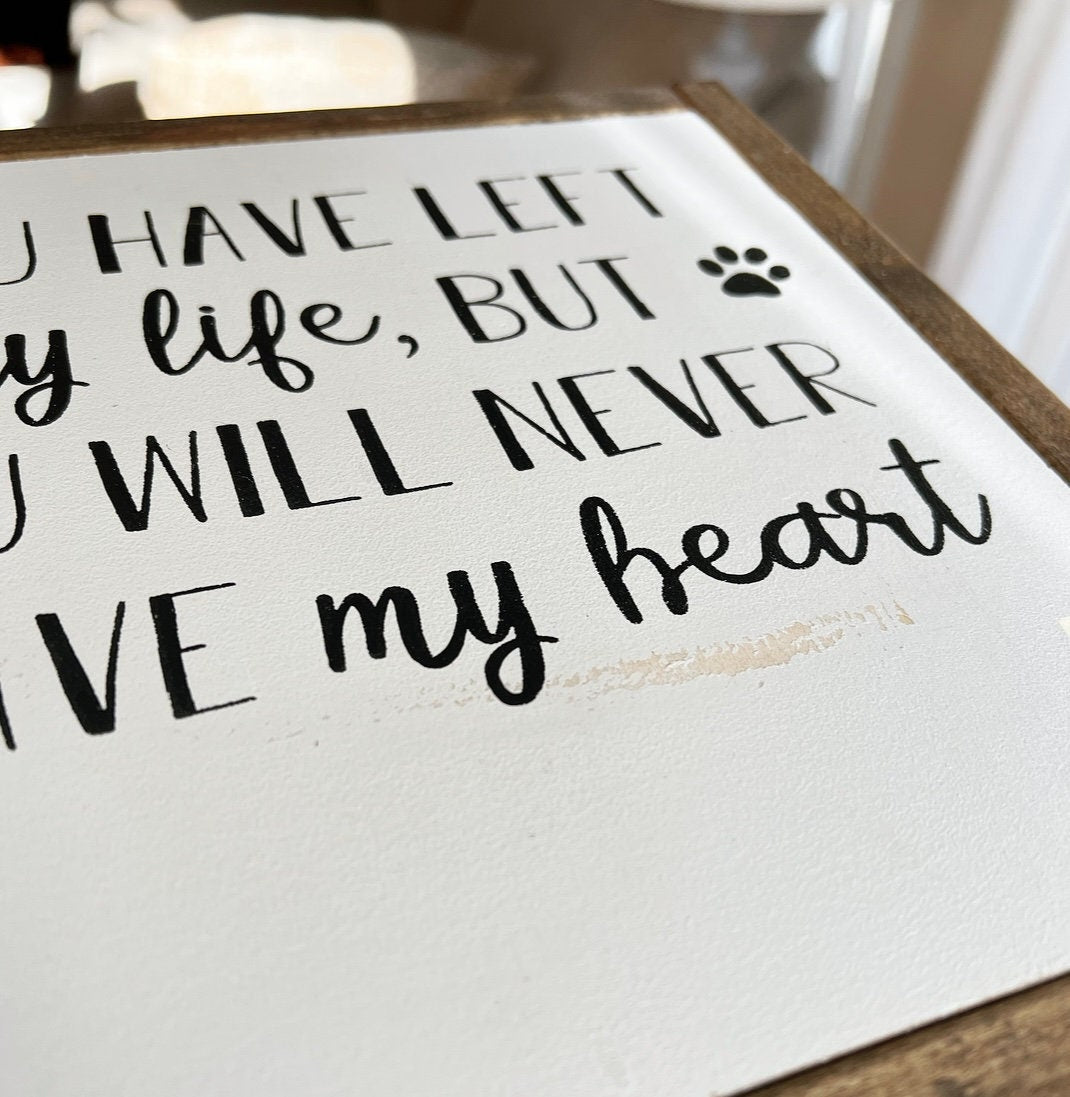 HAVE LEFT
life, BUT
WILL NEVER
my heart